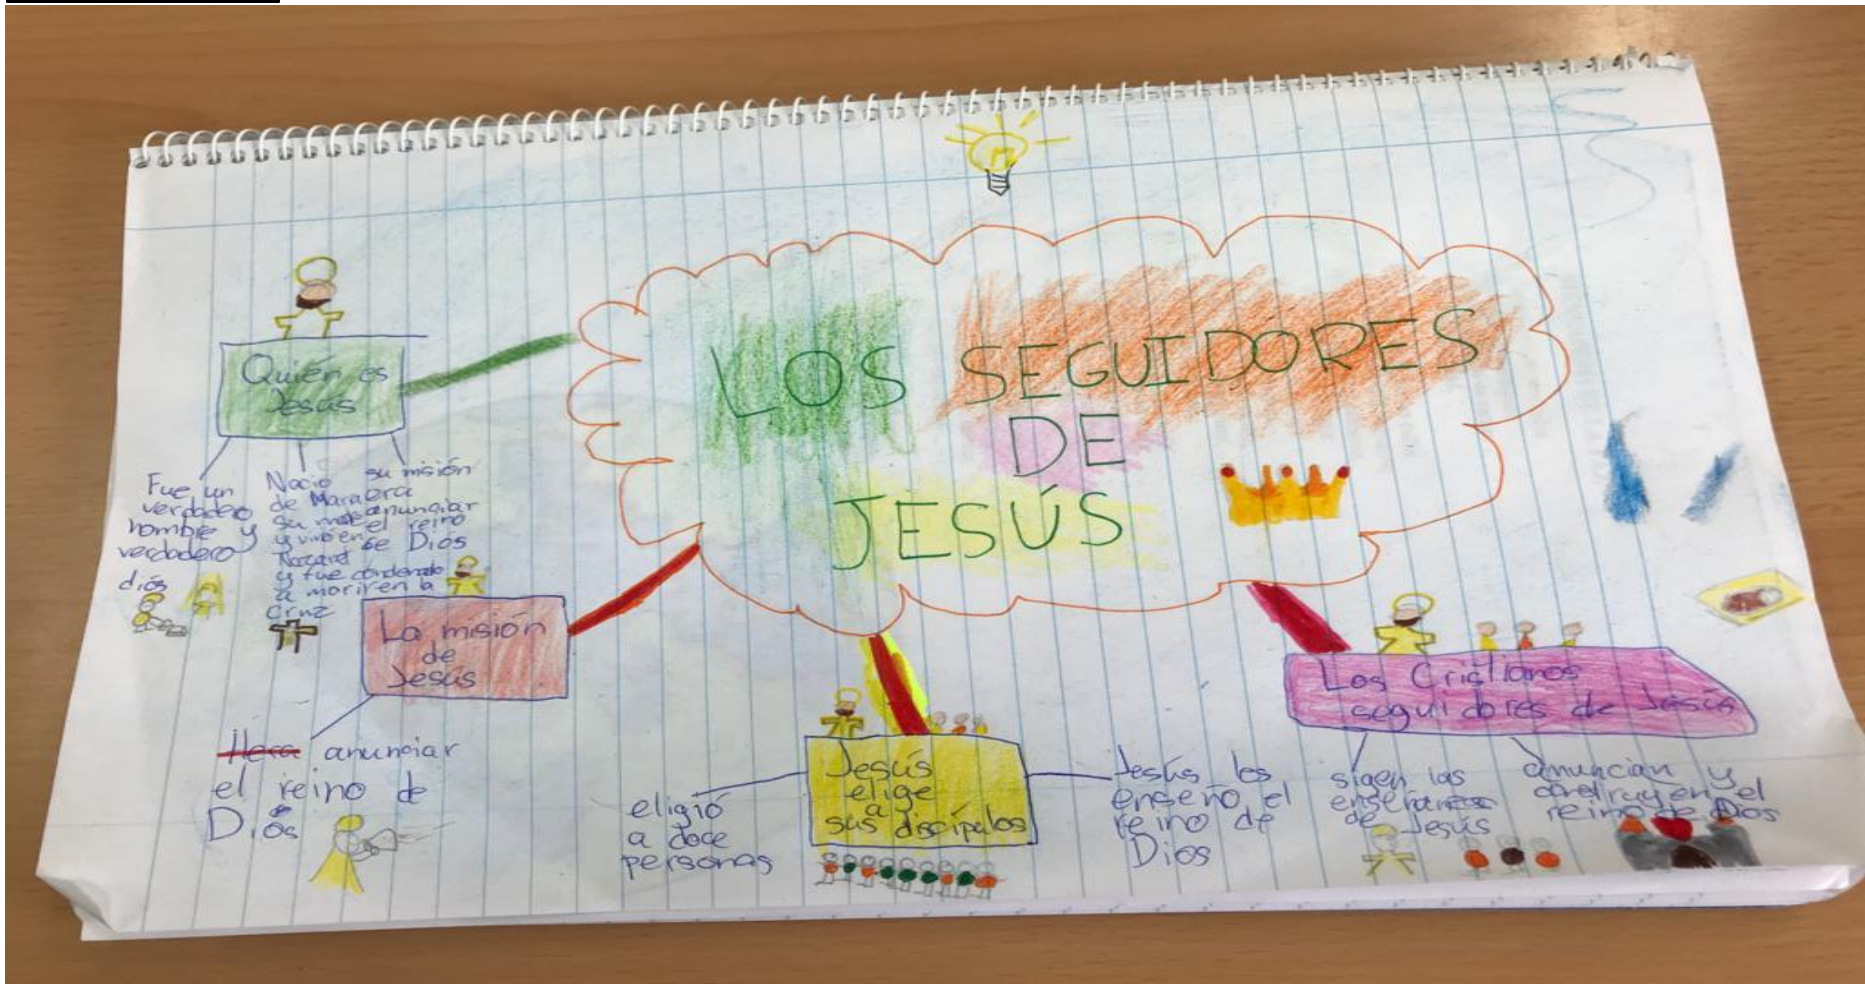 LOS SEGUIDORES
DE
JESÚS
Quién es
Jesús
Fue un
verdadero
hombre y
verdadero
diós
Nació
de María
su madre
y vivió en
Nazaret
y fue condenado
a morir en la
cruz
su misión
era
anunciar
el reino
de Dios
La misión
de
Jesús
Hera anunciar
el reino de
Diós
Jesús
elige
a
sus discípulos
eligió
a doce
personas
Jesús les
enseño el
reino de
Dios
Los Cristianos
seguidores de Jesús
sigen las
enseñanzas
de Jesús
anuncian y
construyen el
reino de Dios